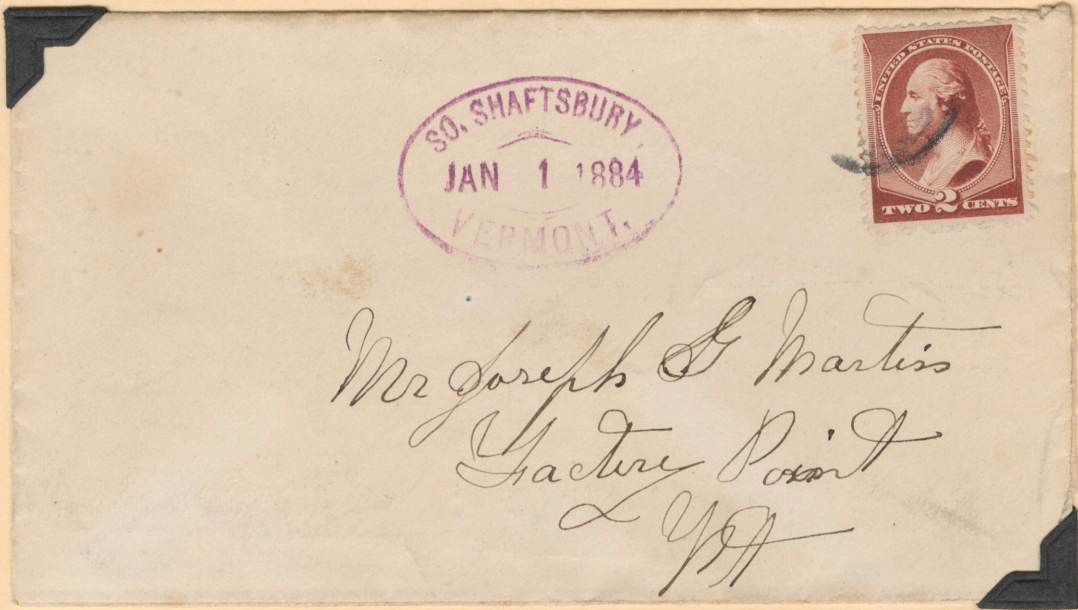 SO. SHAFTSBURY
JAN 1 1884
VERMONT.
UNITED STATES POSTAGE
TWO 2 CENTS
Mr Joseph G Martiss
Factory Point
Vt